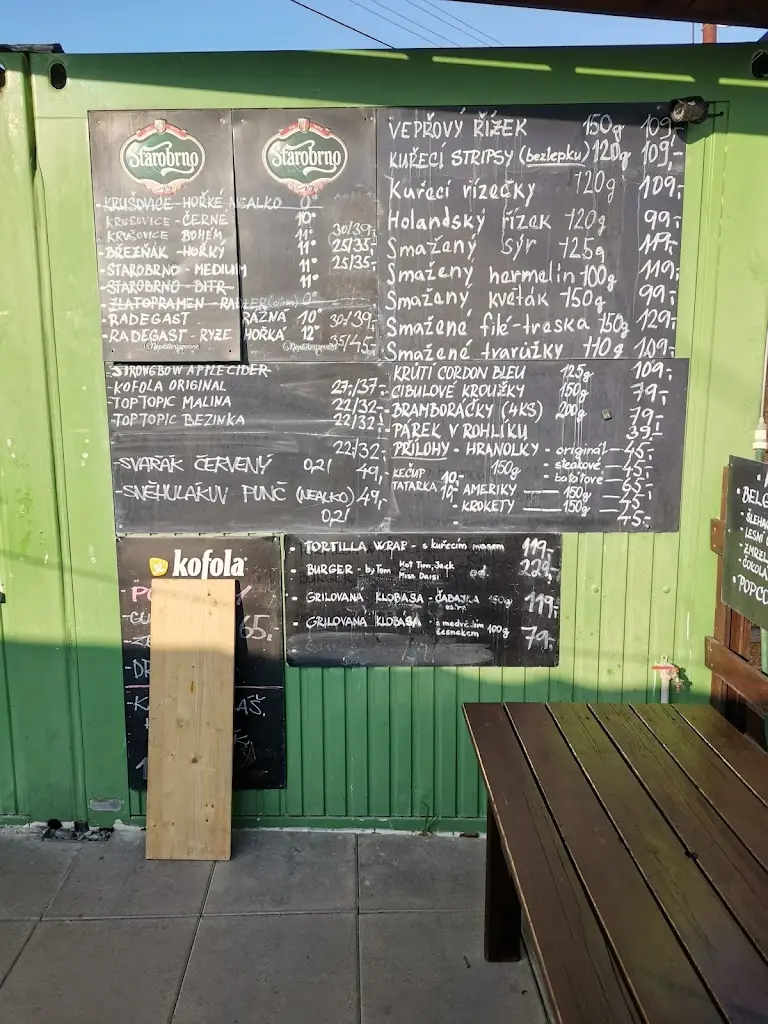 Starobrno
- KRUŠOVICE - HOŘKÉ NEALKO 0°
KRUŠOVICE - ČERNÉ 10°
KRUŠOVICE BOHÉM 11° 30/39,-
- BŘEZŇÁK - HOŘKÝ 11° 25/35-
- STAROBRNO - MEDIUM 11° 25/35,-
- STAROBRNO - BITR 11°
- ZLATOPRAMEN - RADLER 0°
- RADEGAST - RÁZNÁ 10° 30/39,
- RADEGAST - RYZE HOŘKÁ 12° 35/45,-
Starobrno
- STRONGBOW APPLE CIDER
- KOFOLA ORIGINAL 27,-/37,-
- TOP TOPIC MALINA 22/32-
- TOP TOPIC BEZINKA 22/32,-
22/32-
- SVAŘÁK ČERVENÝ 0,2l 49,-
- SNĚHULÁKUV PUNČ (NEALKO) 49,-
0,2l
VEPŘOVÝ ŘÍZEK 150g 109,-
KUŘECÍ STRIPSY (bezlepku) 120g 109,-
Kuřecí řízečky 120g 109,-
Holandský řízek 120g 99,-
Smažený sýr 125g 119,-
Smažený hermelín 100g 119,-
Smažený květák 150g 99,-
Smažené filé-treska 150g 129,-
Smažené tvarůžky 110g 109,-
KRŮTÍ CORDON BLEU 125g 109,-
CIBULOVÉ KROUŽKY 150g 79,-
BRAMBORÁČKY (4KS) 200g 79,-
PÁREK V ROHLÍKU 39,-
PŘÍLOHY - HRANOLKY - originál 45,-
150g - steakové 45,-
- batátové 65,-
KEČUP 10,-
TATARKA 10,-
- AMERIKY 150g
- KROKETY 150g
kofola
65,-
- TORTILLA WRAP - s kuřecím masem 119,-
- BURGER - by Tom Hot Tim, Jack od 229,-
Miss Daisi
- GRILOVANÁ KLOBÁSA - ČABAJKA 150g 119,-
ostrá
- GRILOVANÁ KLOBÁSA - s medvědím 100g 79,-
česnekem
- BELG
- ŠLEHA
- LESNÍ
- ZMRZL
- ČOKOL
- POPCO